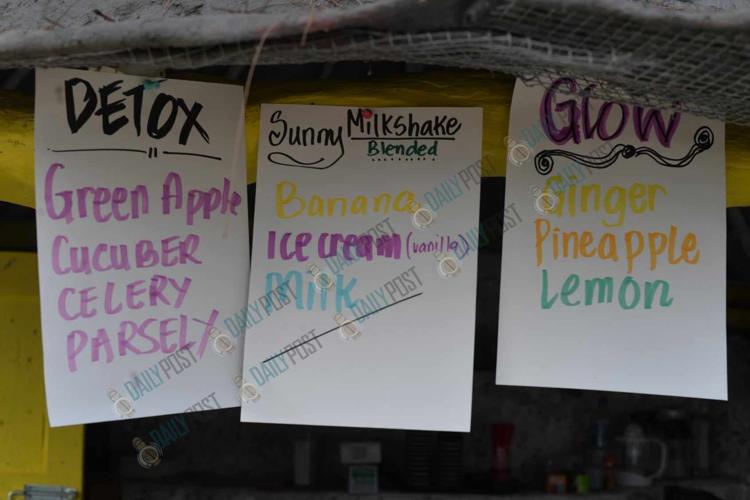 DETOX
Green Apple
CUCUBER
CELERY
PARSELY
Sunny Milkshake
Blended
Banana
Ice cream (vanilla)
Milk
Glow
Ginger
Pineapple
Lemon
DAILY POST
DAILY POST
DAILY POST
DAILY POST
DAILY POST
DAILY POST
DAILY POST
DAILY POST
DAILY POST
DAILY POST